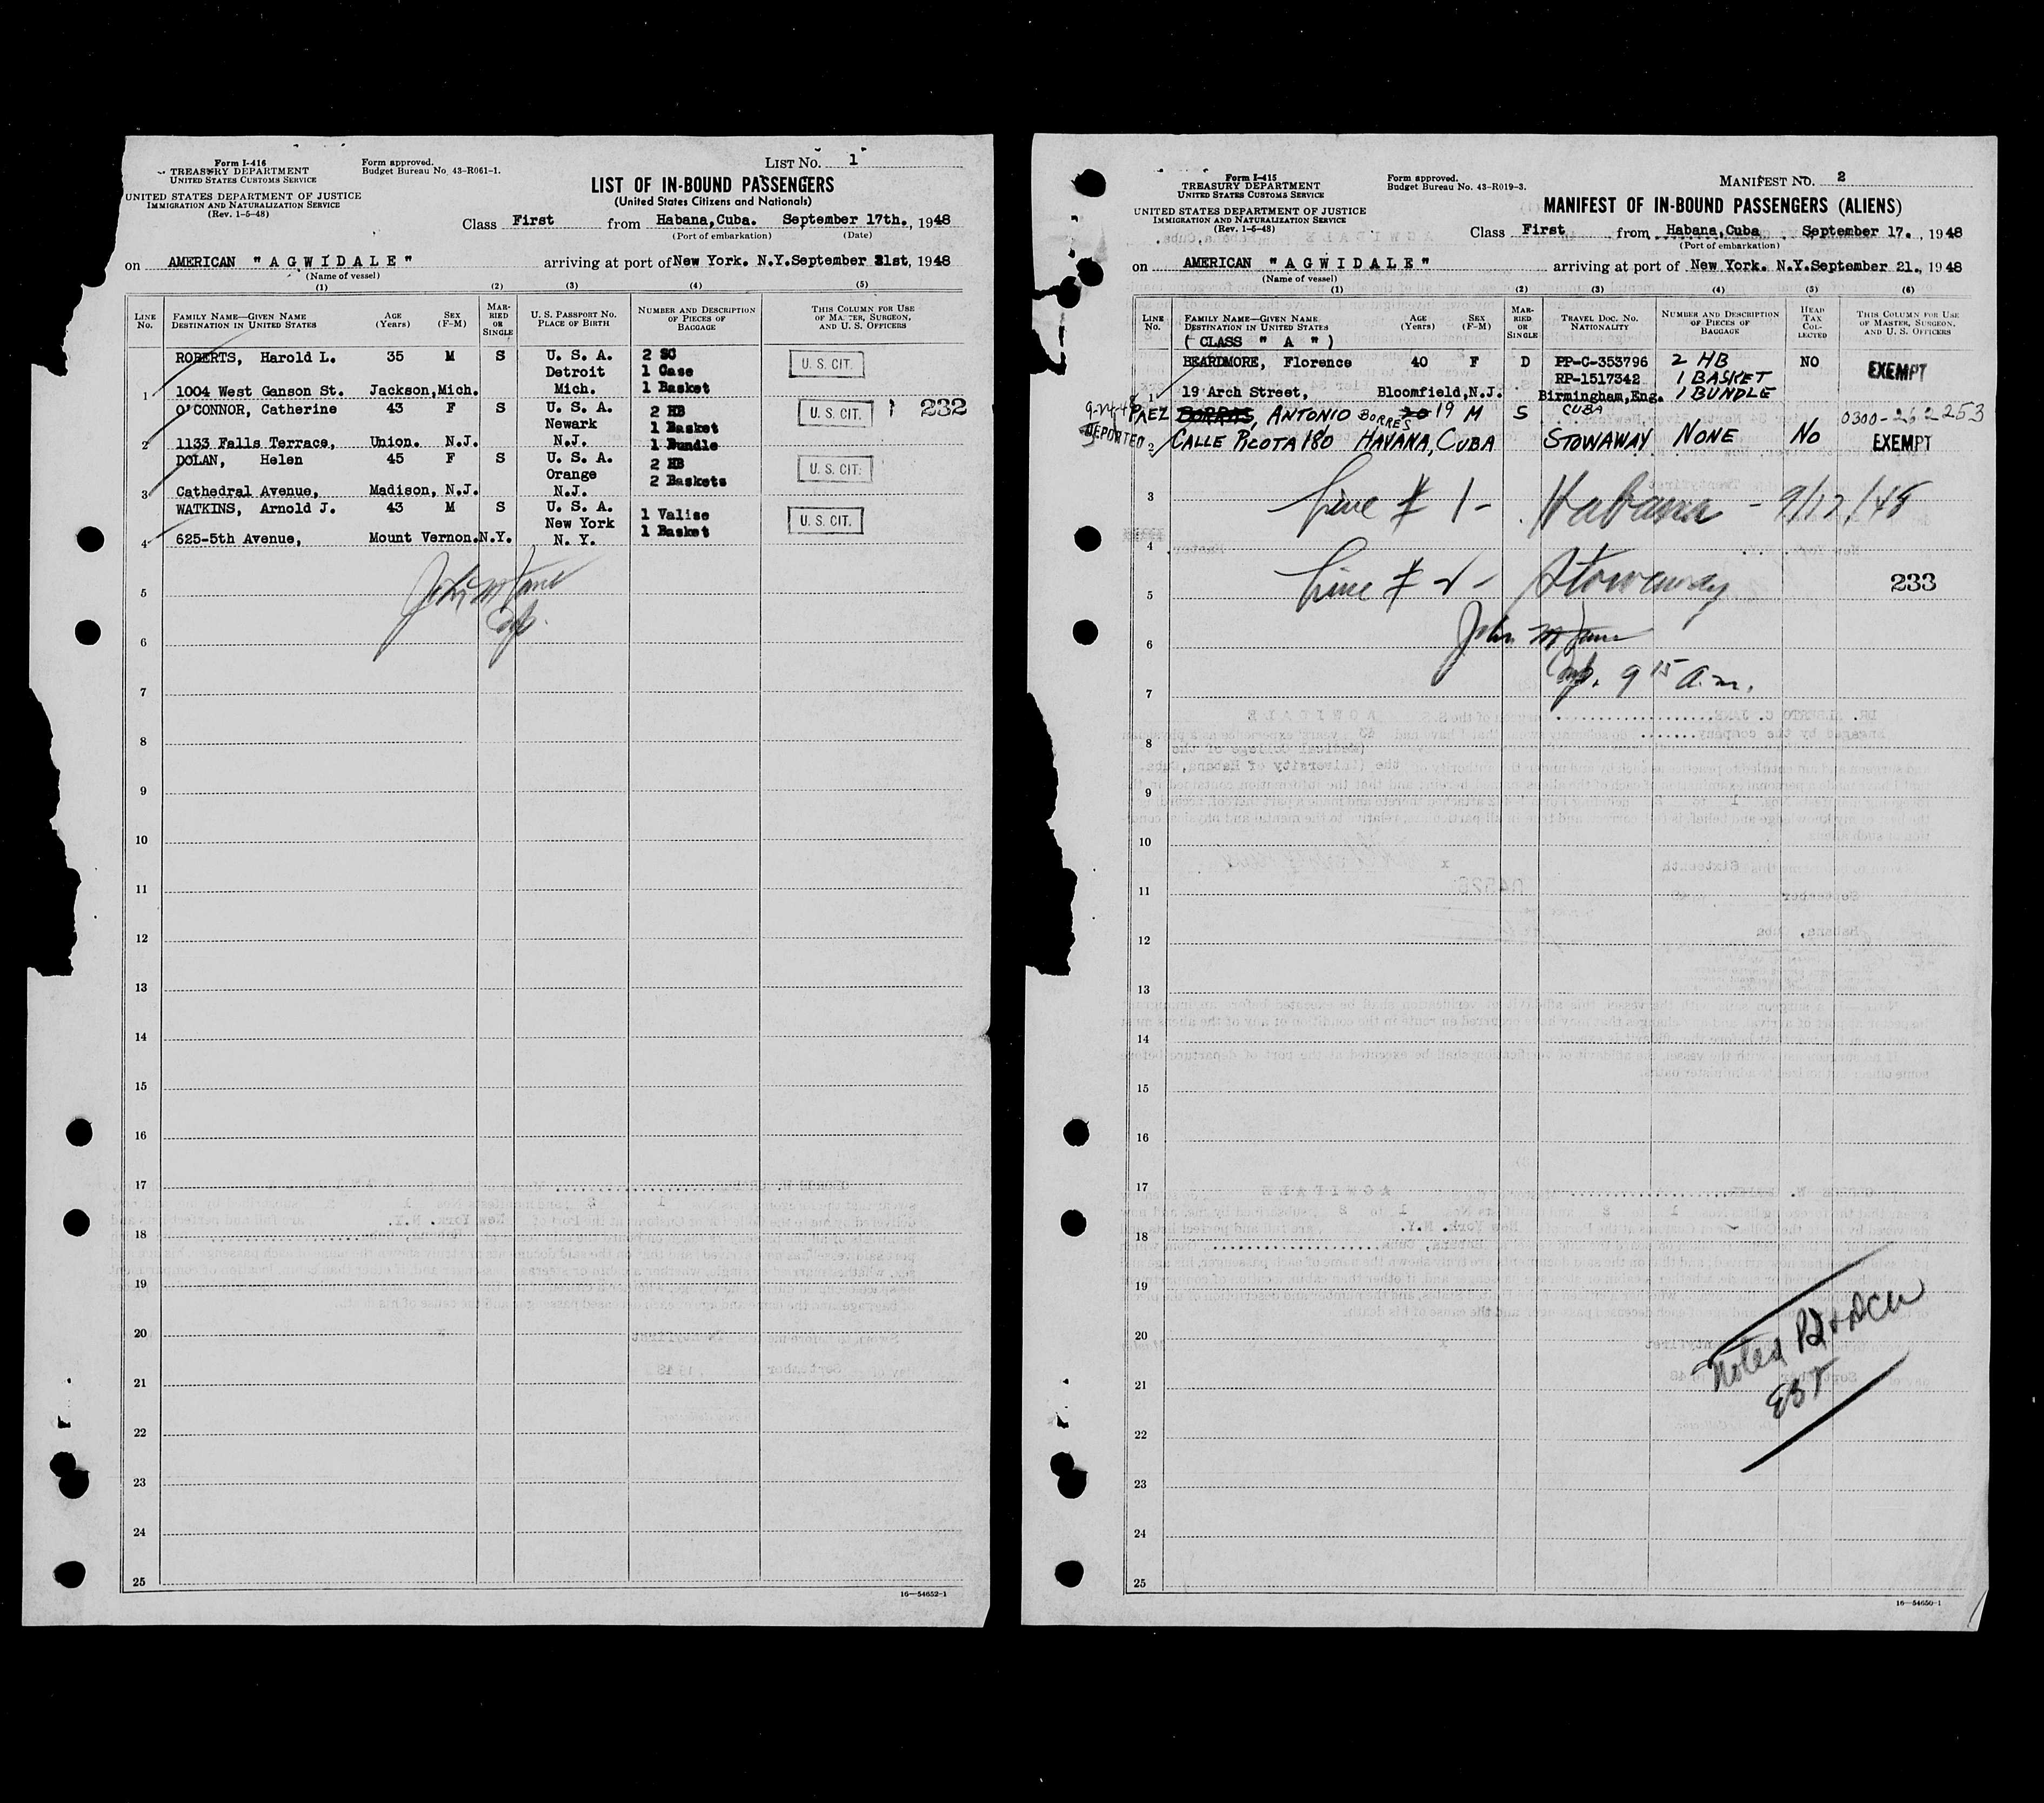 Form I-416
TREASURY DEPARTMENT
UNITED STATES CUSTOMS SERVICE
UNITED STATES DEPARTMENT OF JUSTICE
IMMIGRATION AND NATURALIZATION SERVICE
(Rev. 1-5-48)
Form approved.
Budget Bureau No. 43-R061-1.
LIST NO. 1
LIST OF IN-BOUND PASSENGERS
(United States Citizens and Nationals)
Class First from Habana,Cuba. September 17th., 1948
(Port of embarkation) (Date)
on AMERICAN "AGWIDALE" arriving at port of New York. N.Y. September 21st, 1948
(Name of vessel)
(1) (2) (3) (4) (5)
LINE No. FAMILY NAME—GIVEN NAME DESTINATION IN UNITED STATES AGE (Years) SEX (F-M) MARRIED OR SINGLE U. S. PASSPORT NO. PLACE OF BIRTH NUMBER AND DESCRIPTION OF PIECES OF BAGGAGE THIS COLUMN FOR USE OF MASTER, SURGEON, AND U. S. OFFICERS
ROBERTS, Harold L. 35 M S U. S. A. 2 SC U. S. CIT.
Detroit 1 Case
1 1004 West Ganson St. Jackson,Mich. Mich. 1 Basket
O'CONNOR, Catherine 43 F S U. S. A. 2 HB U. S. CIT. 232
Newark 1 Basket
2 1133 Falls Terrace, Union. N.J. N.J. 1 Bundle
DOLAN, Helen 45 F S U. S. A. 2 HB U. S. CIT.
Orange 2 Baskets
3 Cathedral Avenue, Madison, N.J. N.J.
WATKINS, Arnold J. 43 M S U. S. A. 1 Valise U. S. CIT.
New York 1 Basket
4 625-5th Avenue, Mount Vernon.N.Y. N. Y.
5
6
7
8
9
10
11
12
13
14
15
16
17
18
19
20
21
22
23
24
25
16—54652-1
Form I-415
TREASURY DEPARTMENT
UNITED STATES CUSTOMS SERVICE
UNITED STATES DEPARTMENT OF JUSTICE
IMMIGRATION AND NATURALIZATION SERVICE
(Rev. 1-5-48)
Form approved.
Budget Bureau No. 43-R019-3.
MANIFEST NO. 2
MANIFEST OF IN-BOUND PASSENGERS (ALIENS)
Class First from Habana,Cuba September 17., 1948
(Port of embarkation)
on AMERICAN "AGWIDALE" arriving at port of New York. N.Y. September 21., 1948
(Name of vessel)
(1) (2) (3) (4) (5) (6)
LINE No. FAMILY NAME—GIVEN NAME DESTINATION IN UNITED STATES AGE (Years) SEX (F-M) MARRIED OR SINGLE TRAVEL DOC. NO. NATIONALITY NUMBER AND DESCRIPTION OF PIECES OF BAGGAGE HEAD TAX COLLECTED THIS COLUMN FOR USE OF MASTER, SURGEON, AND U. S. OFFICERS
( CLASS " A " )
BEARDMORE, Florence 40 F D PP-C-353796 2 HB NO EXEMPT
RP-1517342 1 BASKET
1 19 Arch Street, Bloomfield,N.J. Birmingham,Eng. 1 BUNDLE
PAEZ BORRAS, ANTONIO BORRES 20 19 M S CUBA 0300-262253
DEPORTED 2 CALLE PICOTA 180 HAVANA, CUBA STOWAWAY NONE NO EXEMPT
3 Line # 1 - Habana - 9/17/48
4
5 Line # 2 - Stowaway 233
6
7 9 15 a.m.
8
9
10
11
12
13
14
15
16
17
18
19
20 Noted
21
22
23
24
25
16—54650-1